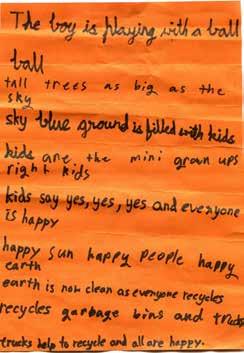 The boy is playing with a ball
ball
tall trees as big as the
sky
sky blue ground is filled with kids
kids are the mini grown ups
right kids
kids say yes, yes, yes and everyone
is happy
happy sun happy people happy
earth
earth is now clean as everyone recycles
recycles garbage bins and trucks
trucks help to recycle and all are happy.